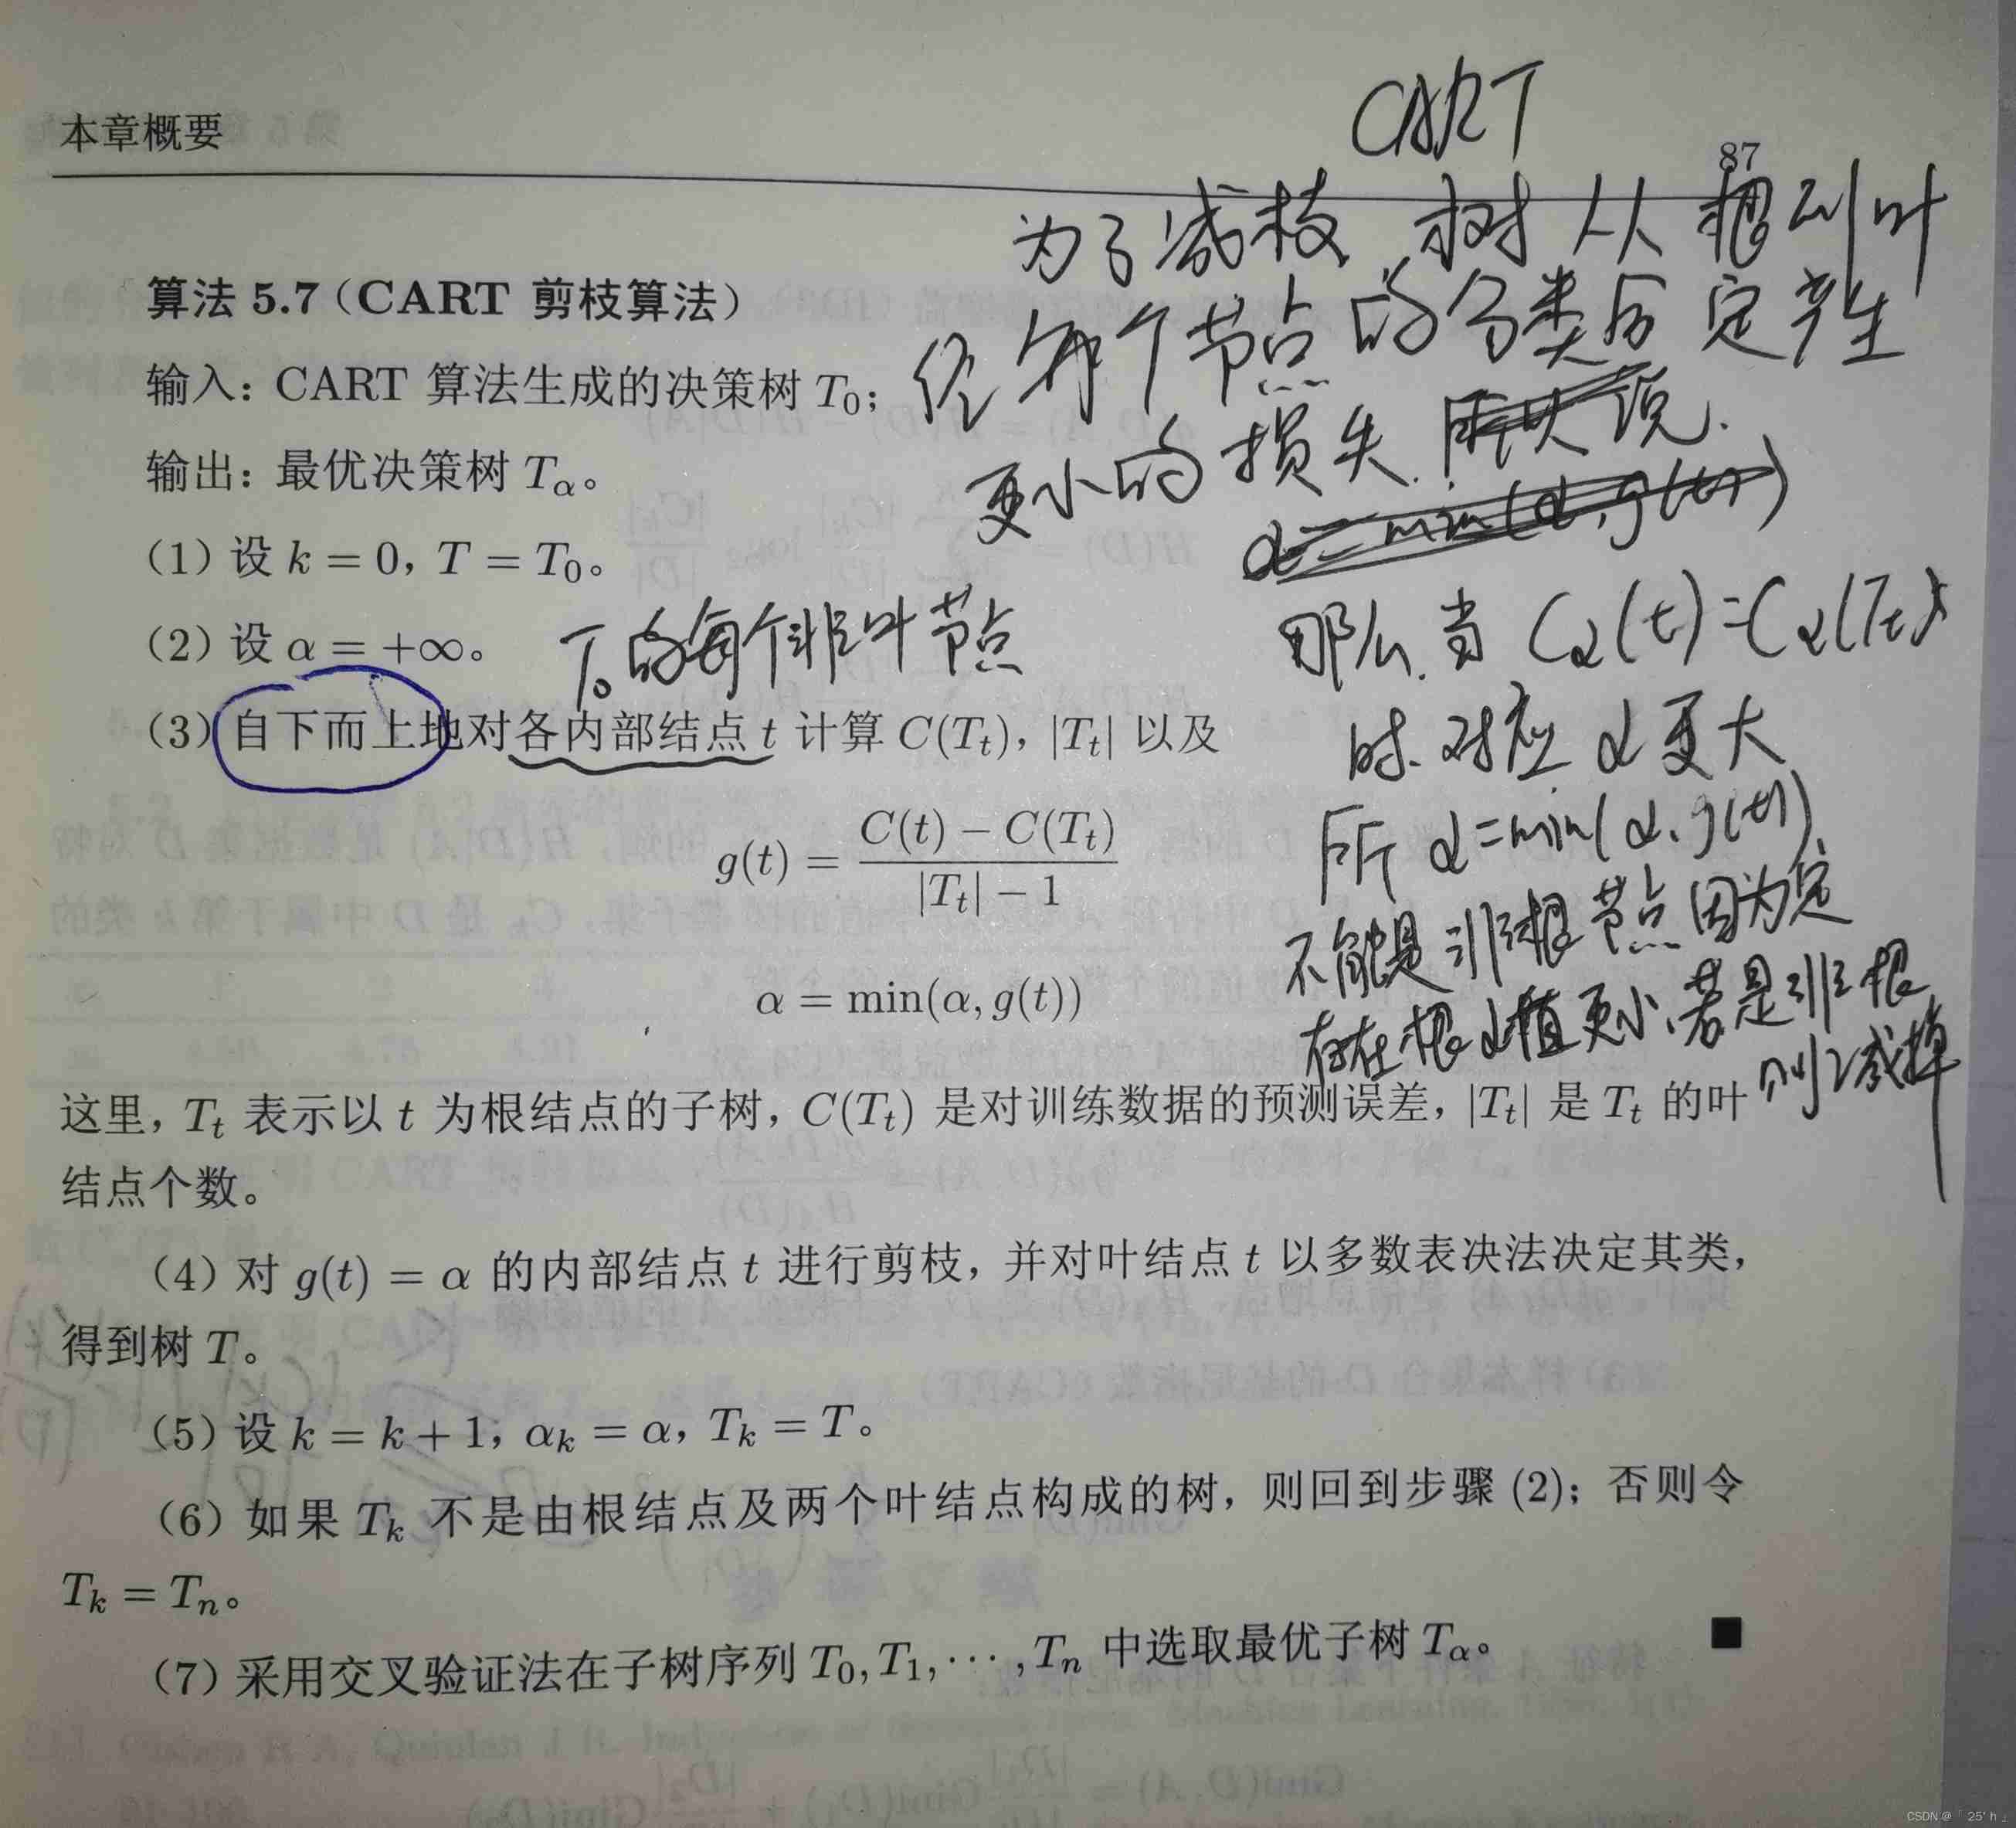 CART
本章概要
87
为了减枝 树从根到叶
经每个节点的分类后定产生
更小的损失 所以说.
α=min(α,g(t))
算法 5.7（CART 剪枝算法）
输入：CART 算法生成的决策树 T₀；
输出：最优决策树 Tα。
（1）设 k = 0，T = T₀。
（2）设 α = +∞。
T₀的每个非叶节点
那么当 Cα(t)=Cα(Tt)
时.对应 α更大
所 α=min(α,g(t))
不能是非根节点因为定
存在根α值更小,若是非根
则减掉
（3）自下而上地对各内部结点 t 计算 C(Tt)，|Tt| 以及
g(t) = (C(t) − C(Tt)) / (|Tt| − 1)
α = min(α, g(t))
这里，Tt 表示以 t 为根结点的子树，C(Tt) 是对训练数据的预测误差，|Tt| 是 Tt 的叶
结点个数。
（4）对 g(t) = α 的内部结点 t 进行剪枝，并对叶结点 t 以多数表决法决定其类，
得到树 T。
（5）设 k = k + 1，αk = α，Tk = T。
（6）如果 Tk 不是由根结点及两个叶结点构成的树，则回到步骤 (2)；否则令
Tk = Tn。
（7）采用交叉验证法在子树序列 T₀, T₁, ⋯ , Tn 中选取最优子树 Tα。
■
CSDN @「 25' h 」